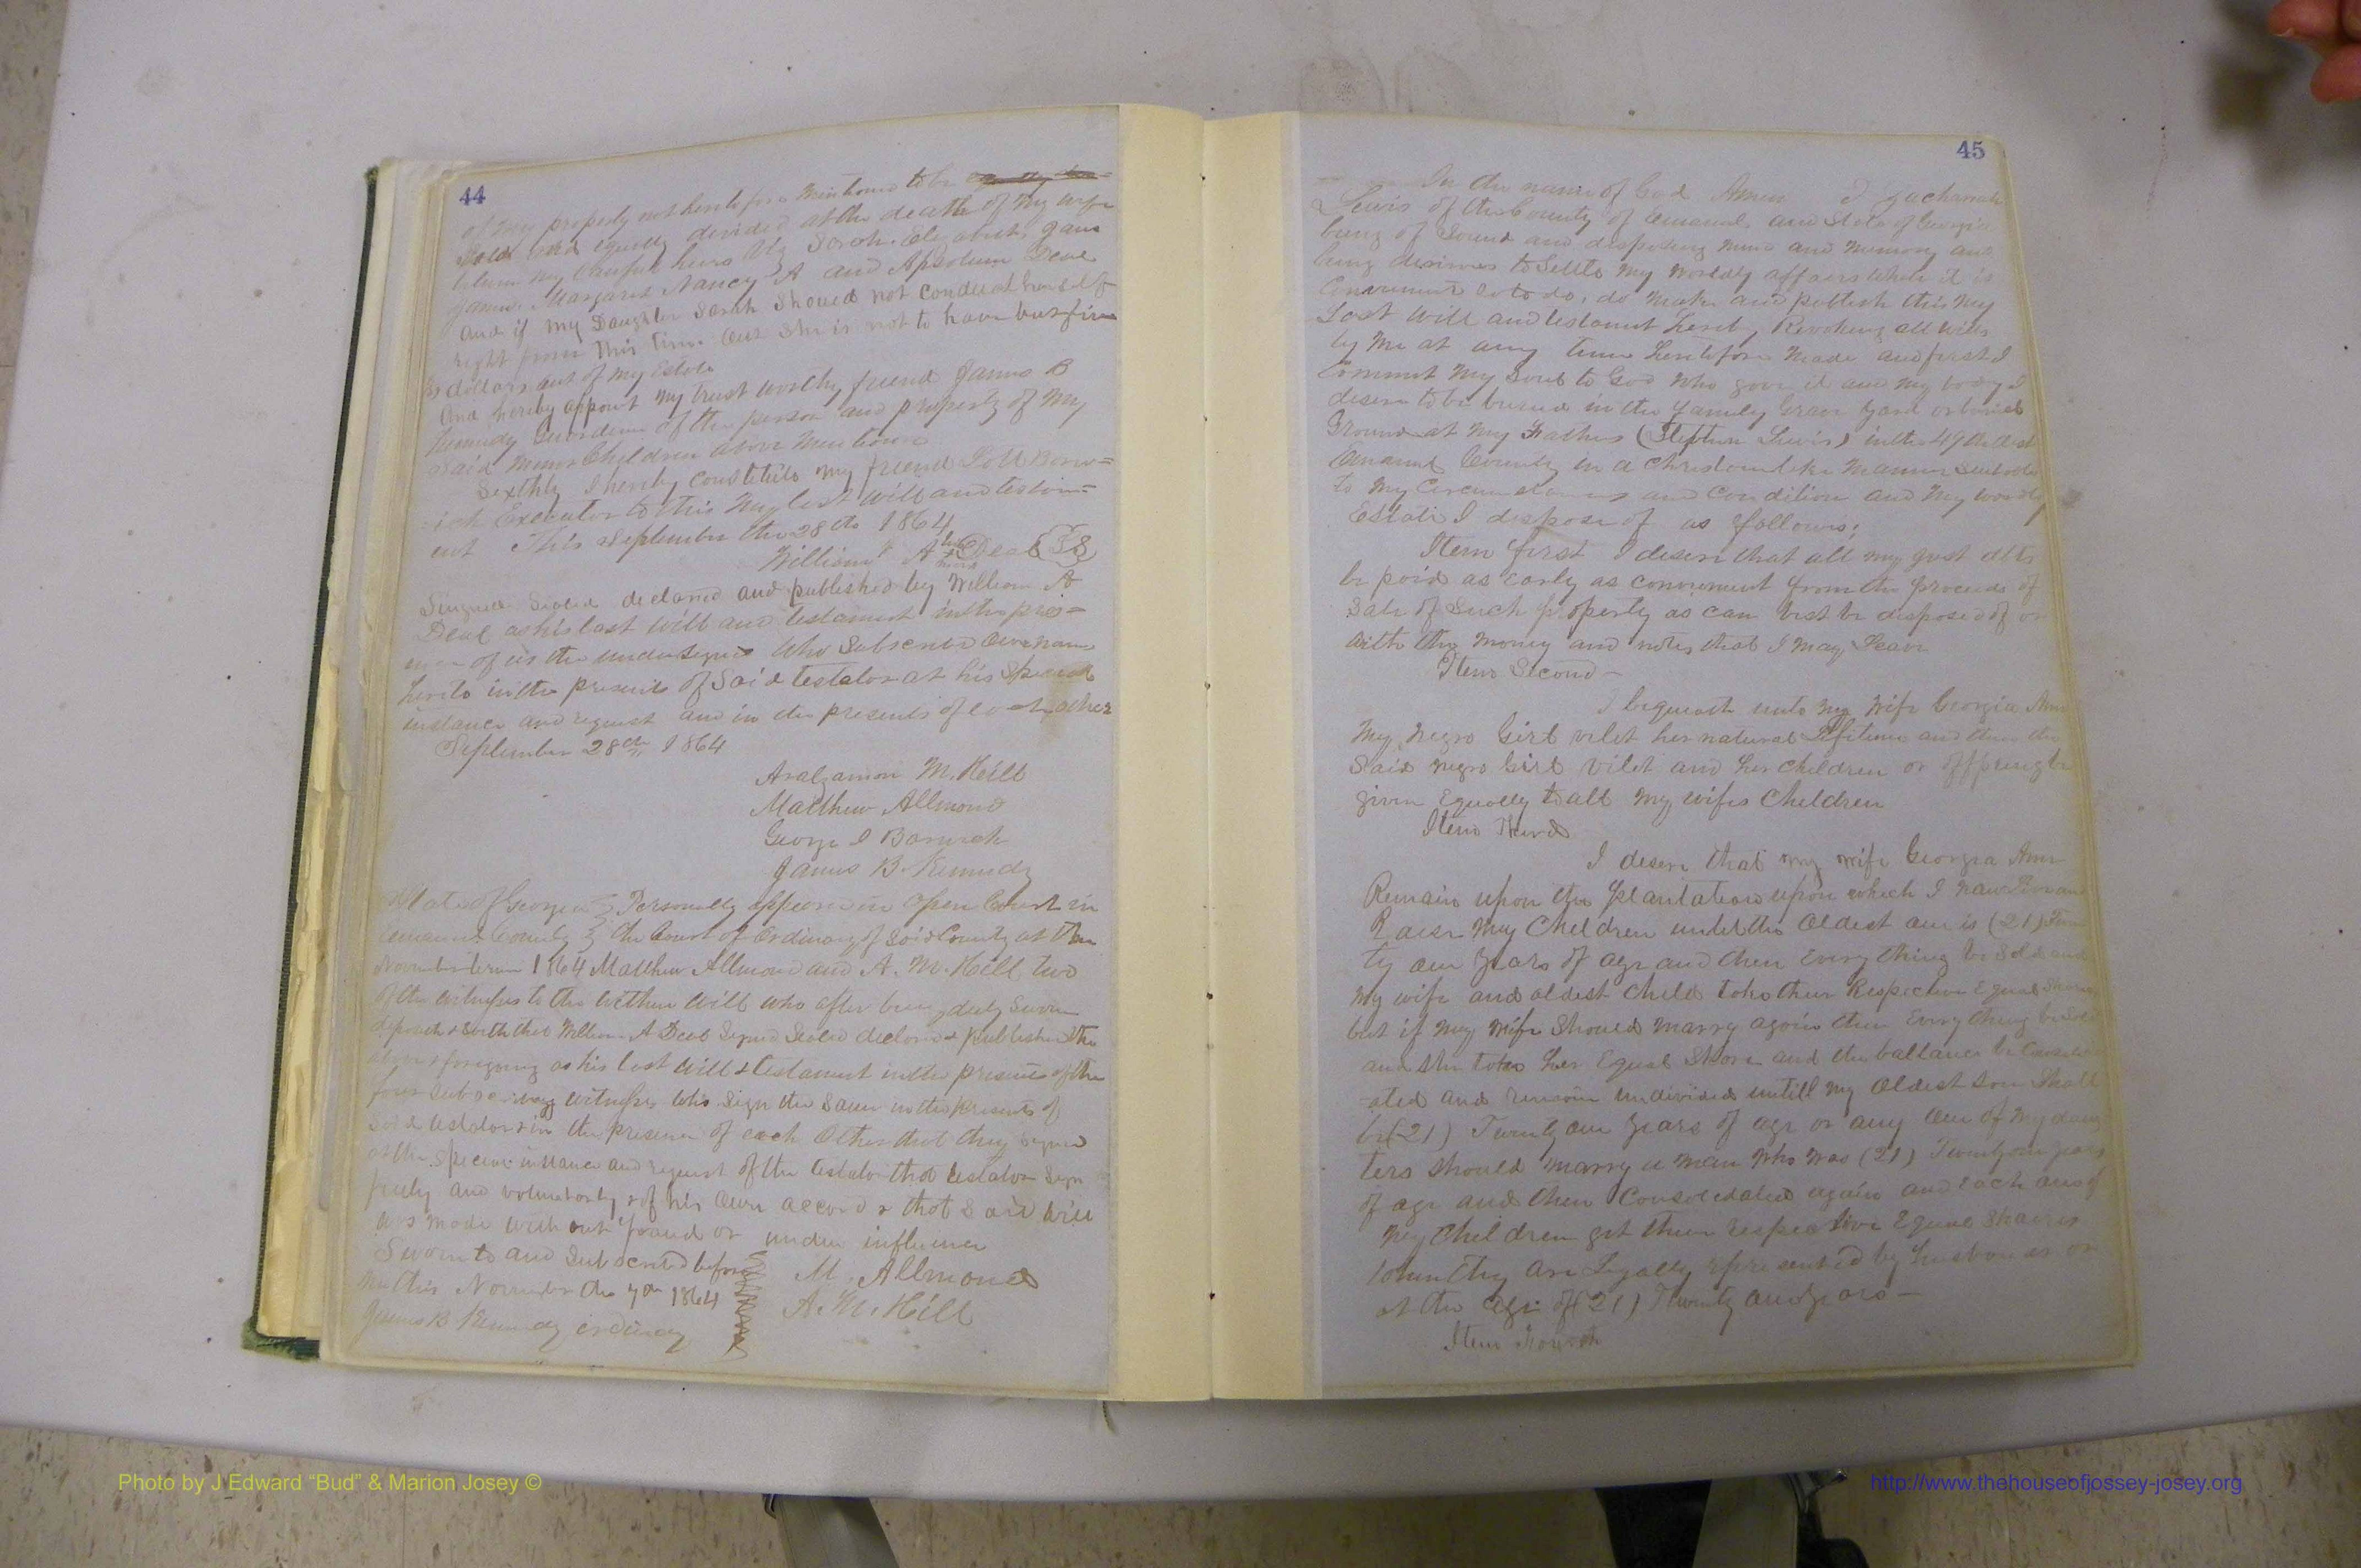 44
of my property not heretofore mentioned to be
Sold and equally divided at the death of my wife
between my lawful heirs viz Sarah. Elizabeth, Jane
James. Margaret Nancy A and Absolum Deal
and if my Daughter Sarah Should not conduct herself
right from this time out she is not to have but five
dollars out of my Estate
And hereby appoint my trust worthy friend James B
Kennedy Guardeun of the person and property of my
said minor Children above mentioned
Sexthly I hereby constitute my friend Barw=
ick Executor to this my last will and testam=
ent This September the 28th 1864
William A Deal
Singned Sealed declared and published by William A
Deal as his last will and testament in the pres=
ence of us the undersigned who Subscribed our names
hereto in the presents of Said testator at his Special
instance and request and in the presents of each other
September 28th 1864
M. Hill
Matthew Allmond
George I Barwick
James B. Kennedy
State of Georgia } Personally appeared in open Court in
Emanuel County } the Court of Ordinary of Said County at the
November term 1864 Matthew Allmond and A. M. Hill two
of the witnesses to the within will who after being duly Sworn
deposeth & Saith that William A Deal Signed Sealed declared & published the
above & foregoing as his last will & testament in the presence of the
four witnesses who Sign the Same in the presents of
Said testator & in the presence of each Other that they signed
at the special instance and request of the testator that testator Sign
freely and voluntarily & of his own accord & that Said Will
was made without fraud or under influence
Sworn to and Subscribed before
me this November the 7th 1864
M. Allmond
A. M. Hill
James B Kennedy ordinary
45
In the name of God Amen I Zachariah
Lewis of the County of Emanuel and State of Georgia
being of Sound and disposing mind and memory and
being desirous to Settle my worldly affairs while it is
Convenient so to do, do make and publish this my
Last Will and testament hereby Revoking all wills
by me at any time heretofore made and first I
Commit my Soul to God who gave it and my body I
desire to be buried in the family Grave yard or burial
Ground at my Fathers (Stephen Lewis) in the 49th dist
Emanuel County in a Christianlike manner Suitable
to my Circumstances and Condition and my worldly
Estate I dispose of as follows;
Item first I desire that all my just
be paid as early as convenient from the proceeds of
Sale of Such property as can best be disposed of or
with the money and notes that I may Leave
Item Second -
I bequeath unto my wife Georgia Ann
My negro Girl vilet her natural Lifetime and then the
Said negro Girl Vilet and her children or
given Equally to all my wifes Children
Item Third
I desire that my wife Georgia Ann
Remain upon the plantation upon which I now Live and
Raise my Children untill the Oldest one is (21) Twen
ty one years of age and then Every thing be Sold and
my wife and oldest child take their Respective Equal Shares
but if my wife Should marry again then Every thing be Sold
and She take her Equal Share and the ballance be
ated and remain undivided untill my Oldest Son Shall
be (21) Twenty one years of age or any one of my daugh
ters should marry a man who was (21) Twenty one years
of age and then Consolidated again and each one of
my Children get their respective Equal Shares
when they are Legally represented by husbands or
at the age of (21) Twenty one years -
Item Fourth
Photo by J Edward “Bud” & Marion Josey ©
http://www.thehouseofjossey-josey.org